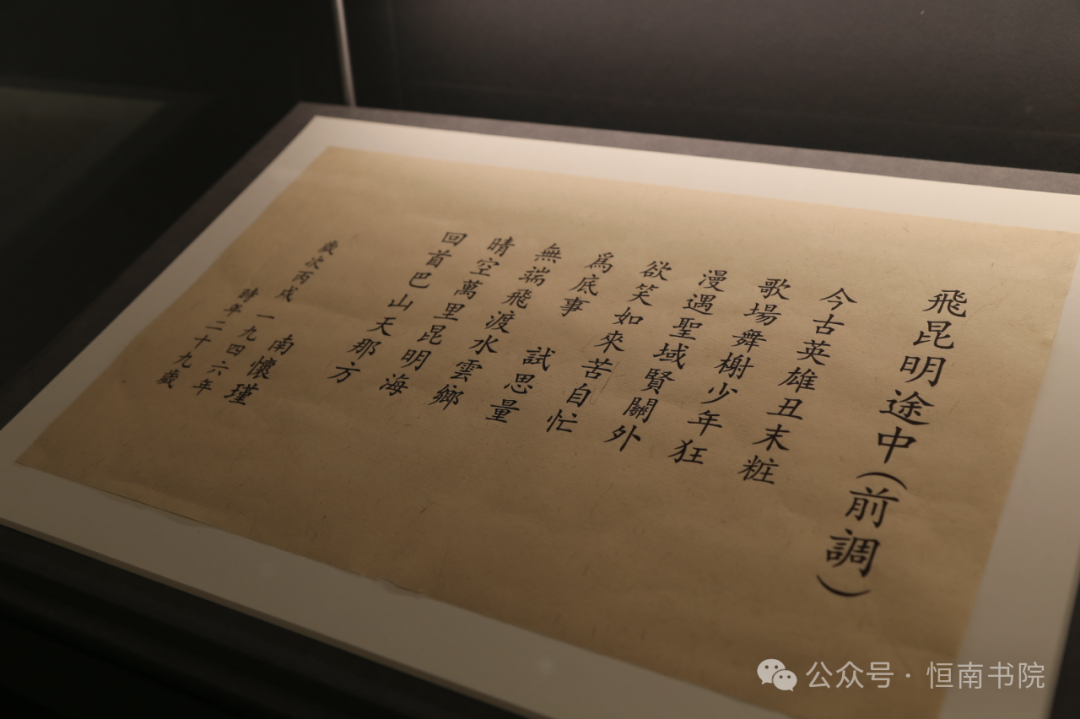 飛昆明途中(前調)
今古英雄丑末粧
歌場舞榭少年狂
漫遇聖域賢關外
欲笑如來苦自忙
為底事 試思量
無端飛渡水雲鄉
晴空萬里昆明海
回首巴山天那方
南懷瑾
歲次丙戌 一九四六年
時年二十九歲
公众号·恒南书院